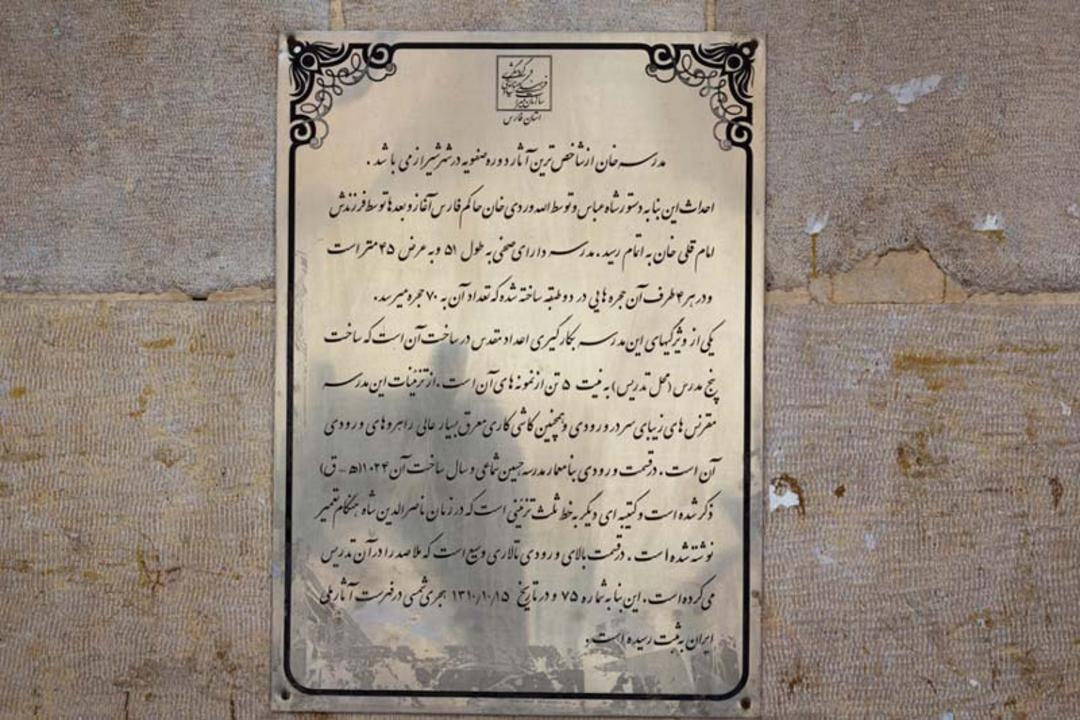 سازمان میراث فرهنگی و گردشگری
استان فارس
مدرسه خان از شاخص ترین آثار دوره صفویه در شهر شیراز می باشد .
احداث این بنا به دستور شاه عباس و توسط الله وردی خان حاکم فارس آغاز و بعدها توسط فرزندش
امام قلی خان به اتمام رسید . مدرسه دارای صحنی به طول ۵۱ و به عرض ۴۵ متر است
و در هر ۴ طرف آن حجره هایی در دو طبقه ساخته شده که تعداد آن به ۷۰ حجره میرسد .
یکی از ویژگیهای این مدرسه بکارگیری اعداد مقدس در ساخت آن است که ساخت
پنج مدرس (محل تدریس) به نیت ۵ تن از نمونه های آن است . از تزئیات این مدرسه
مقرنس های زیبای سر در ورودی و همچنین کاشی کاری معرق بسیار عالی راهروهای ورودی
آن است . در قسمت ورودی بنا معمار مدرسه حسین شماعی و سال ساخت آن ۱۰۲۴ (ه - ق)
ذکر شده است و کتیبه ای دیگر به خط ثلث تزئینی است که در زمان ناصرالدین شاه هنگام تعمیر
نوشته شده است . در قسمت بالای ورودی تالاری وسیع است که ملاصدرا در آن تدریس
می کرده است . این بنا به شماره ۷۵ و در تاریخ ۱۳۱۰/۱۰/۱۵ هجری شمسی در فهرست آثار ملی
ایران به ثبت رسیده است .